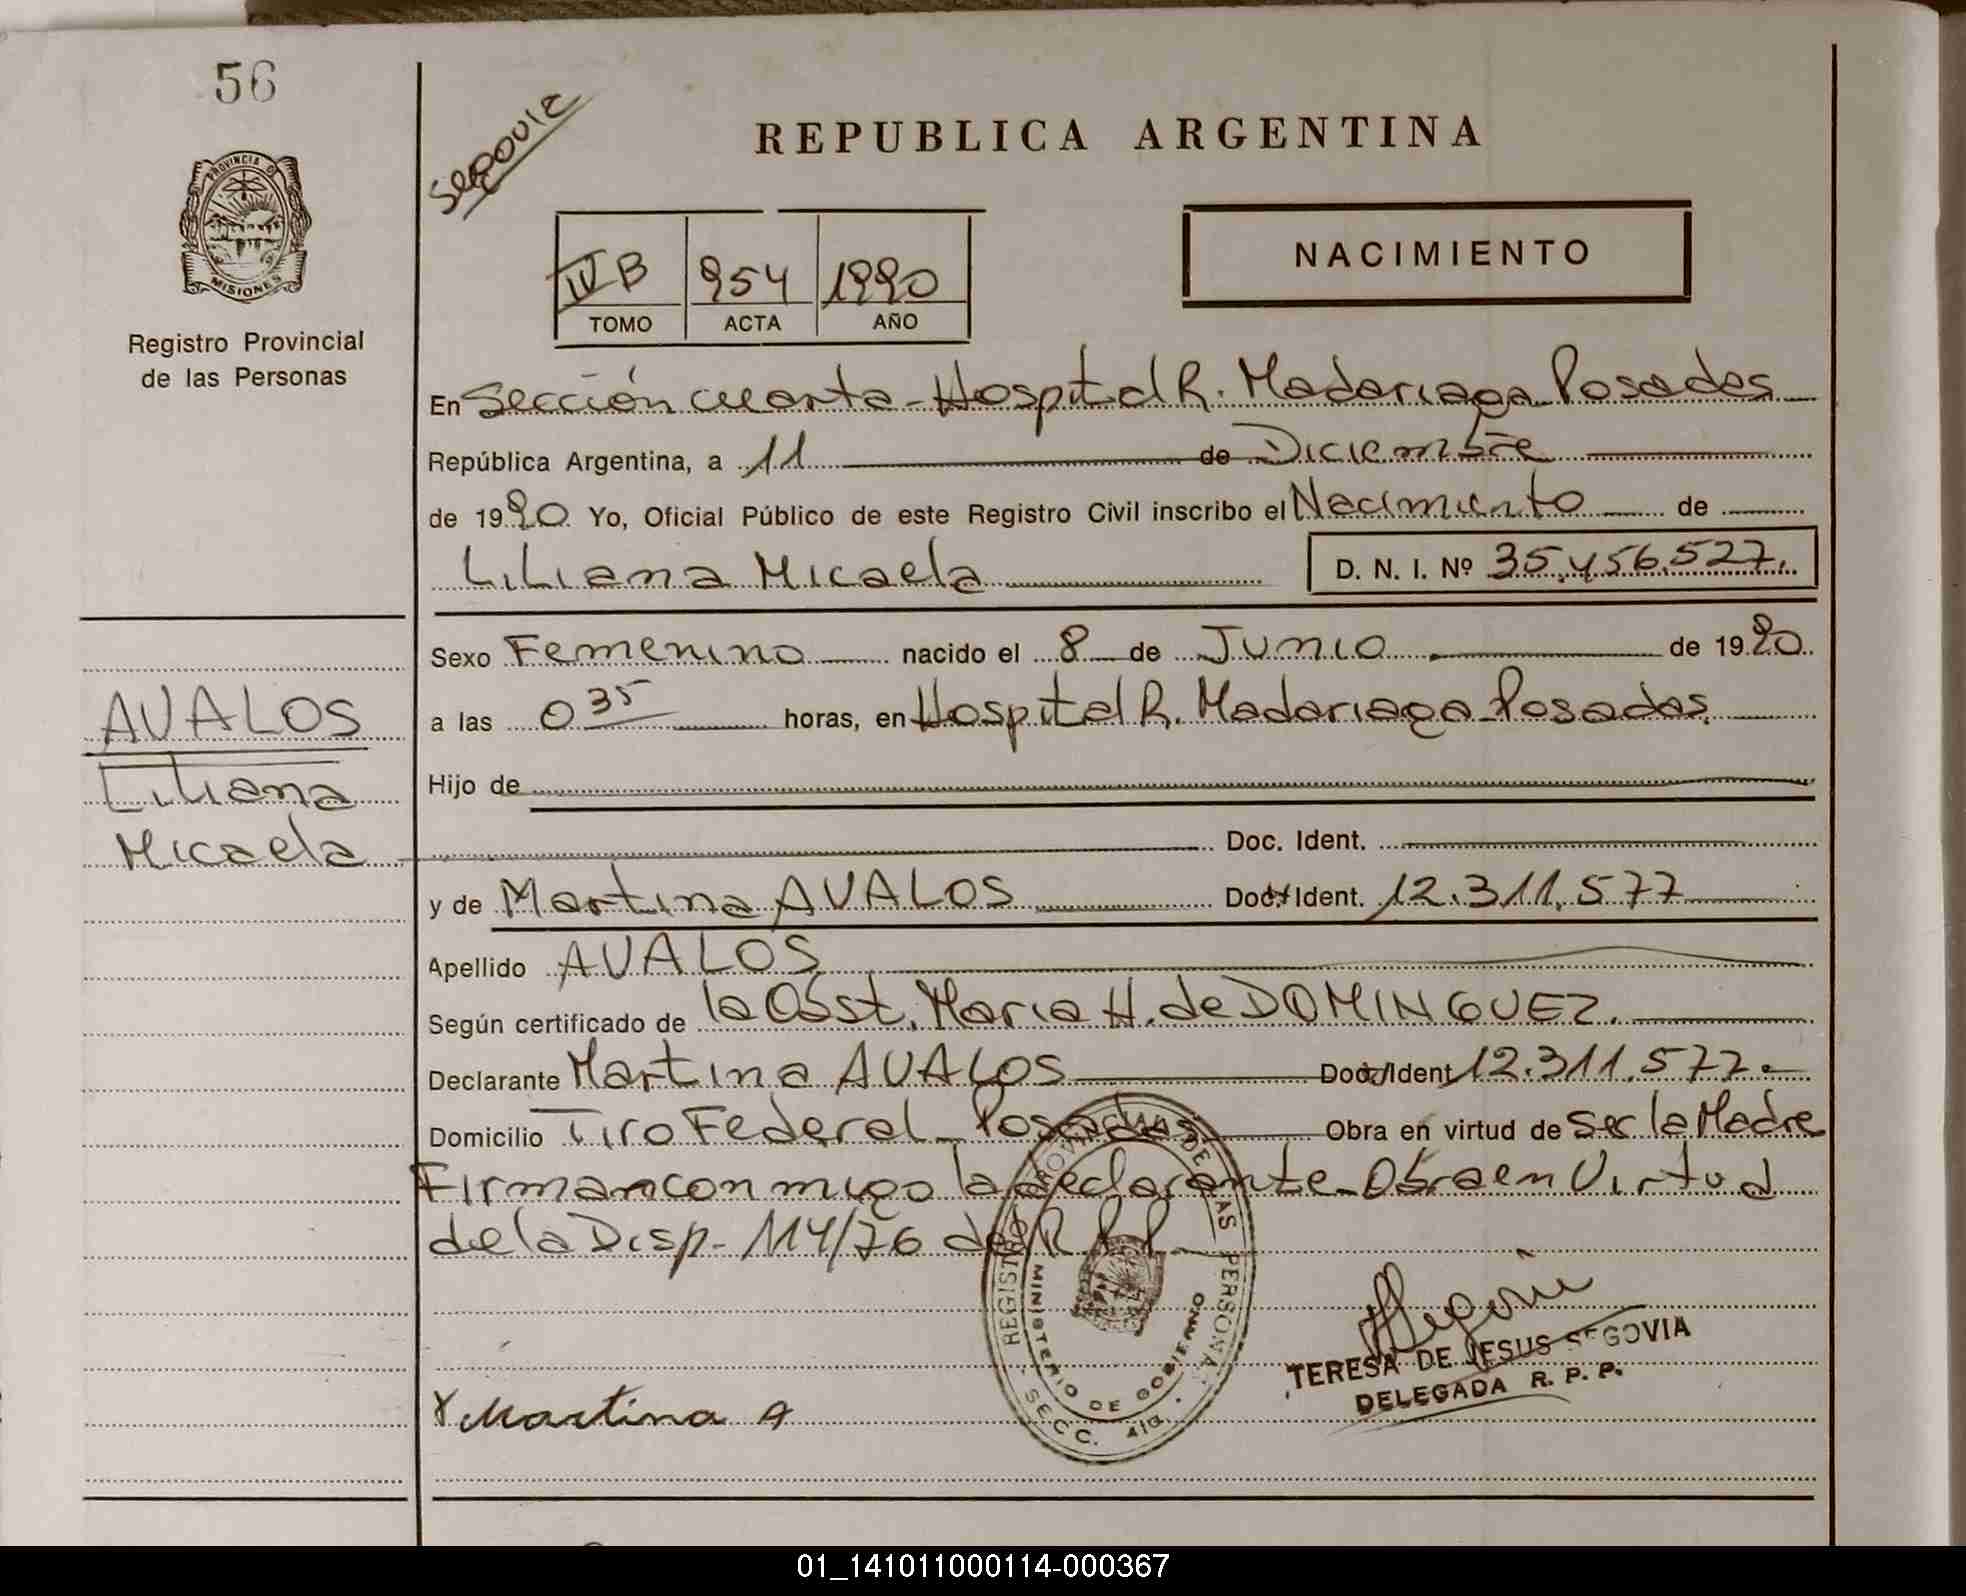 56
PROVINCIA D
MISIONES
Registro Provincial
de las Personas
REPUBLICA ARGENTINA
NACIMIENTO
IV B 954 1990
TOMO ACTA AÑO
En Sección cuarta - Hospital R. Madariaga Posadas
República Argentina, a 11 de Diciembre
de 1990 Yo, Oficial Público de este Registro Civil inscribo el Nacimiento de
Liliana Micaela D. N. I. Nº 35.456.527.
Sexo Femenino nacido el 8 de Junio de 1990
a las 0 35 horas, en Hospital R. Madariaga - Posadas.
Hijo de
Doc. Ident.
y de Martina AVALOS Doc. Ident. 12.311.577
Apellido AVALOS
Según certificado de la Obst. Maria H. de DOMINGUEZ.
Declarante Martina AVALOS Doc. Ident 12.311.577.
Domicilio Tiro Federal - Posadas Obra en virtud de ser la Madre
Firman conmigo la declarante - Obra en Virtud
de la Disp. 114/76 del R P P
AVALOS
Liliana
Micaela
REGISTRO PROVINCIAL DE LAS PERSONAS
MINISTERIO DE GOBIERNO
SECC. 4ta.
TERESA DE JESUS SEGOVIA
DELEGADA R. P. P.
Martina A
01_141011000114-000367